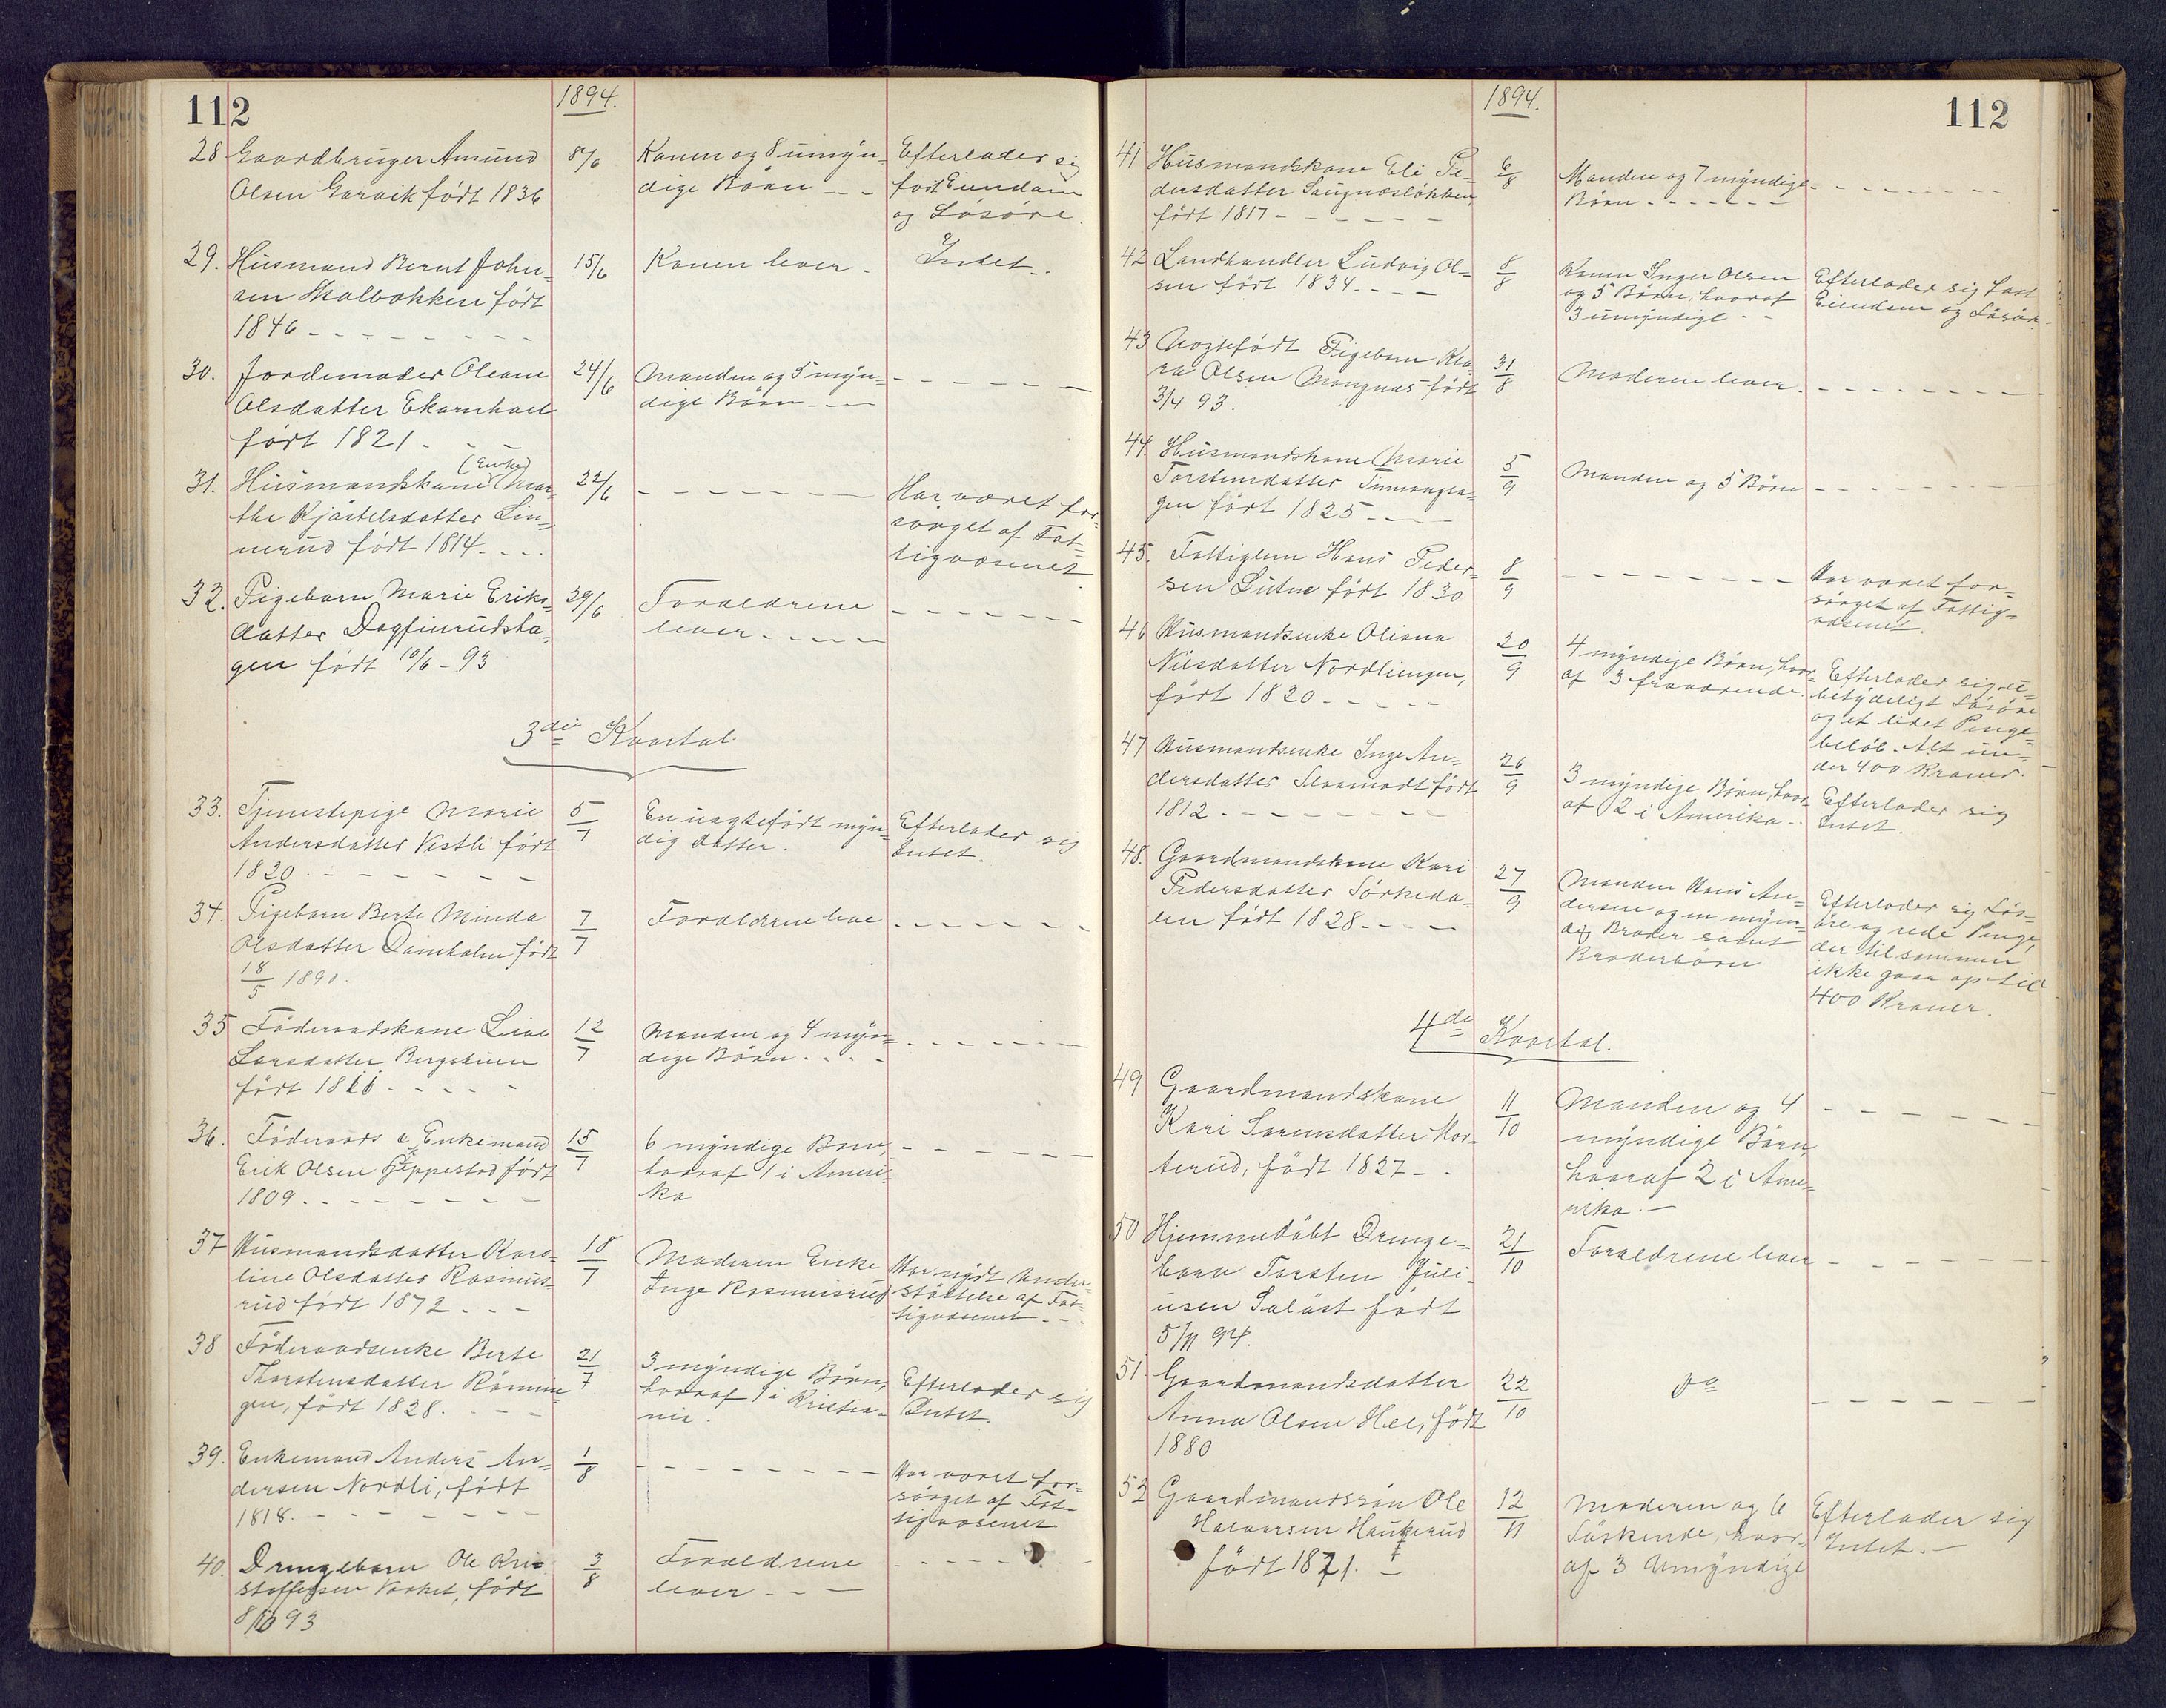 112
1894.
28 Gaardbruger Amund
Olsen Garvik født 1836
8/6
Konen og 8 umyn-
dige Börn - -
Efterlader sig
fast Eiendom
og Lösöre.
29. Husmand Bernt John-
sen Skalbakken født
1846 - - -
15/6
Konen lever.
Intet.
30. Jordemoder Oleane
Olsdatter Ekornhoel
født 1821. - -
24/6
Manden og 5 myn-
dige Börn - - -
- - - - -
31. Husmandskone (Enke) Mar-
the Kjöstelsdatter Lin-
nerud født 1814. - - -
22/6
- - - - - -
Har været for-
sörget af Fat-
tigvæsenet
32. Pigebarn Marie Eriks-
datter Dagfinrudsha-
gen født 10/6 - 93
29/6
Forældrene
lever. - - - -
- - - - -
3die Kvartal.
33. Tjenestepige Marie
Andersdatter Vestli født
1820. - - - - -
5/7
En uægtefödt myn-
dig datter.
Efterlader sig
Intet.
34. Pigebarn Berte Minda
Olsdatter Damholen født
18/5 1890.
7/7
Forældrene leve
- - - - -
35 Föderaadskone Live
Larsdatter Bergstuen
født 1811 - - - -
12/7
Manden og 4 myn-
dige Börn - - - -
- - - - -
36. Föderaads & Enkemand
Erik Olsen Gjeppestad født
1809. - - - - - -
15/7
6 myndige Börn,
hvoraf 1 i Ameri-
ka
- - - - -
37 Husmandsdatter Karo-
line Olsdatter Rasmus-
rud født 1872 - - -
18/7
Moderen Enke
Inge Rasmusrud
Har nydt Under-
stöttelse af Fat-
tigvæsenet - -
38 Föderaadsenke Berte
Thorstensdatter Römmin-
gen, født 1828. - - -
21/7
3 myndige Börn,
hvoraf 1 i Kristia-
nia.
Efterlader sig
Intet.
39. Enkemand Anders An-
dersen Nordli, født
1818. - - - - - -
1/8
- - - - - -
Har været for-
sörget af Fat-
tigvæsenet
40. Drengebarn Ole Kri-
stoffersen født
8/10 93
3/8
Forældrene
lever - - -
- - - - -
112
1894.
41 Husmandskone Eli Pe-
dersdatter Saugnæslökken,
født 1817 - - - - -
6/8
Manden og 7 myndige
Börn - - - - -
- - - - -
42 Landhandler Ludvig Ol-
sen født 1834. - - -
8/8
Konen Inger Olsen
og 5 Börn, hvoraf
3 umyndige - -
Efterlader sig fast
Eiendom og Lösöre.
43 Uægtefödt Pigebarn Kla-
ra Olsen Mangnæs født
3/4 93.
31/8
Moderen lever.
- - - - -
44. Husmandskone Marie
Torstensdatter
gen født 1825 - - -
5/9
Manden og 5 Börn
- - - - -
45. Fattiglem Hans Peder-
sen født 1830
8/9
- - - - - -
Har været for-
sörget af Fattig-
væsenet.
46 Husmandsenke Oliana
Nilsdatter Nordliengen,
født 1820 - - - - -
20/9
4 myndige Börn, hvor-
af 3 fraværende.
Efterlader sig u-
betydeligt Lösöre
og et lidet Penge-
belöb. Alt un-
der 400 Kroner. -
47 Husmandsenke Inge An-
dersdatter født
1812 - - - - - -
26/9
3 myndige Börn, hvor-
af 2 i Amerika -
Efterlader sig
Intet.
48. Gaardmandskone Kari
Pedersdatter Sörkeda-
len født 1828. - - -
27/9
Manden Hans An-
dersen og en myn-
dig Broder samt
Broderbörn
Efterlader sig Lös-
öre og rede Penge,
der tilsammen
ikke gaar op til
400 Kroner.
4de Kvartal.
49 Gaardmandskone
Kari Sorensdatter Hor-
terud, født 1827 - -
11/10
Manden og 4
myndige Börn,
hvoraf 2 i Ame-
rika. -
- - - - -
50 Hjemmedöbt Drenge-
barn Torsten Juli-
usen født
5/11 94.
21/10
Forældrene lever
- - - - -
51 Gaardmandsdatter
Anna Olsen født
1880
22/10
do
- - - - -
52 Gaardmandssön Ole
Halvorsen Haukerud
født 1871. -
12/11
Moderen og 6
Söskende, hvor-
af 3 Umyndige
Efterlader sig
Intet. -